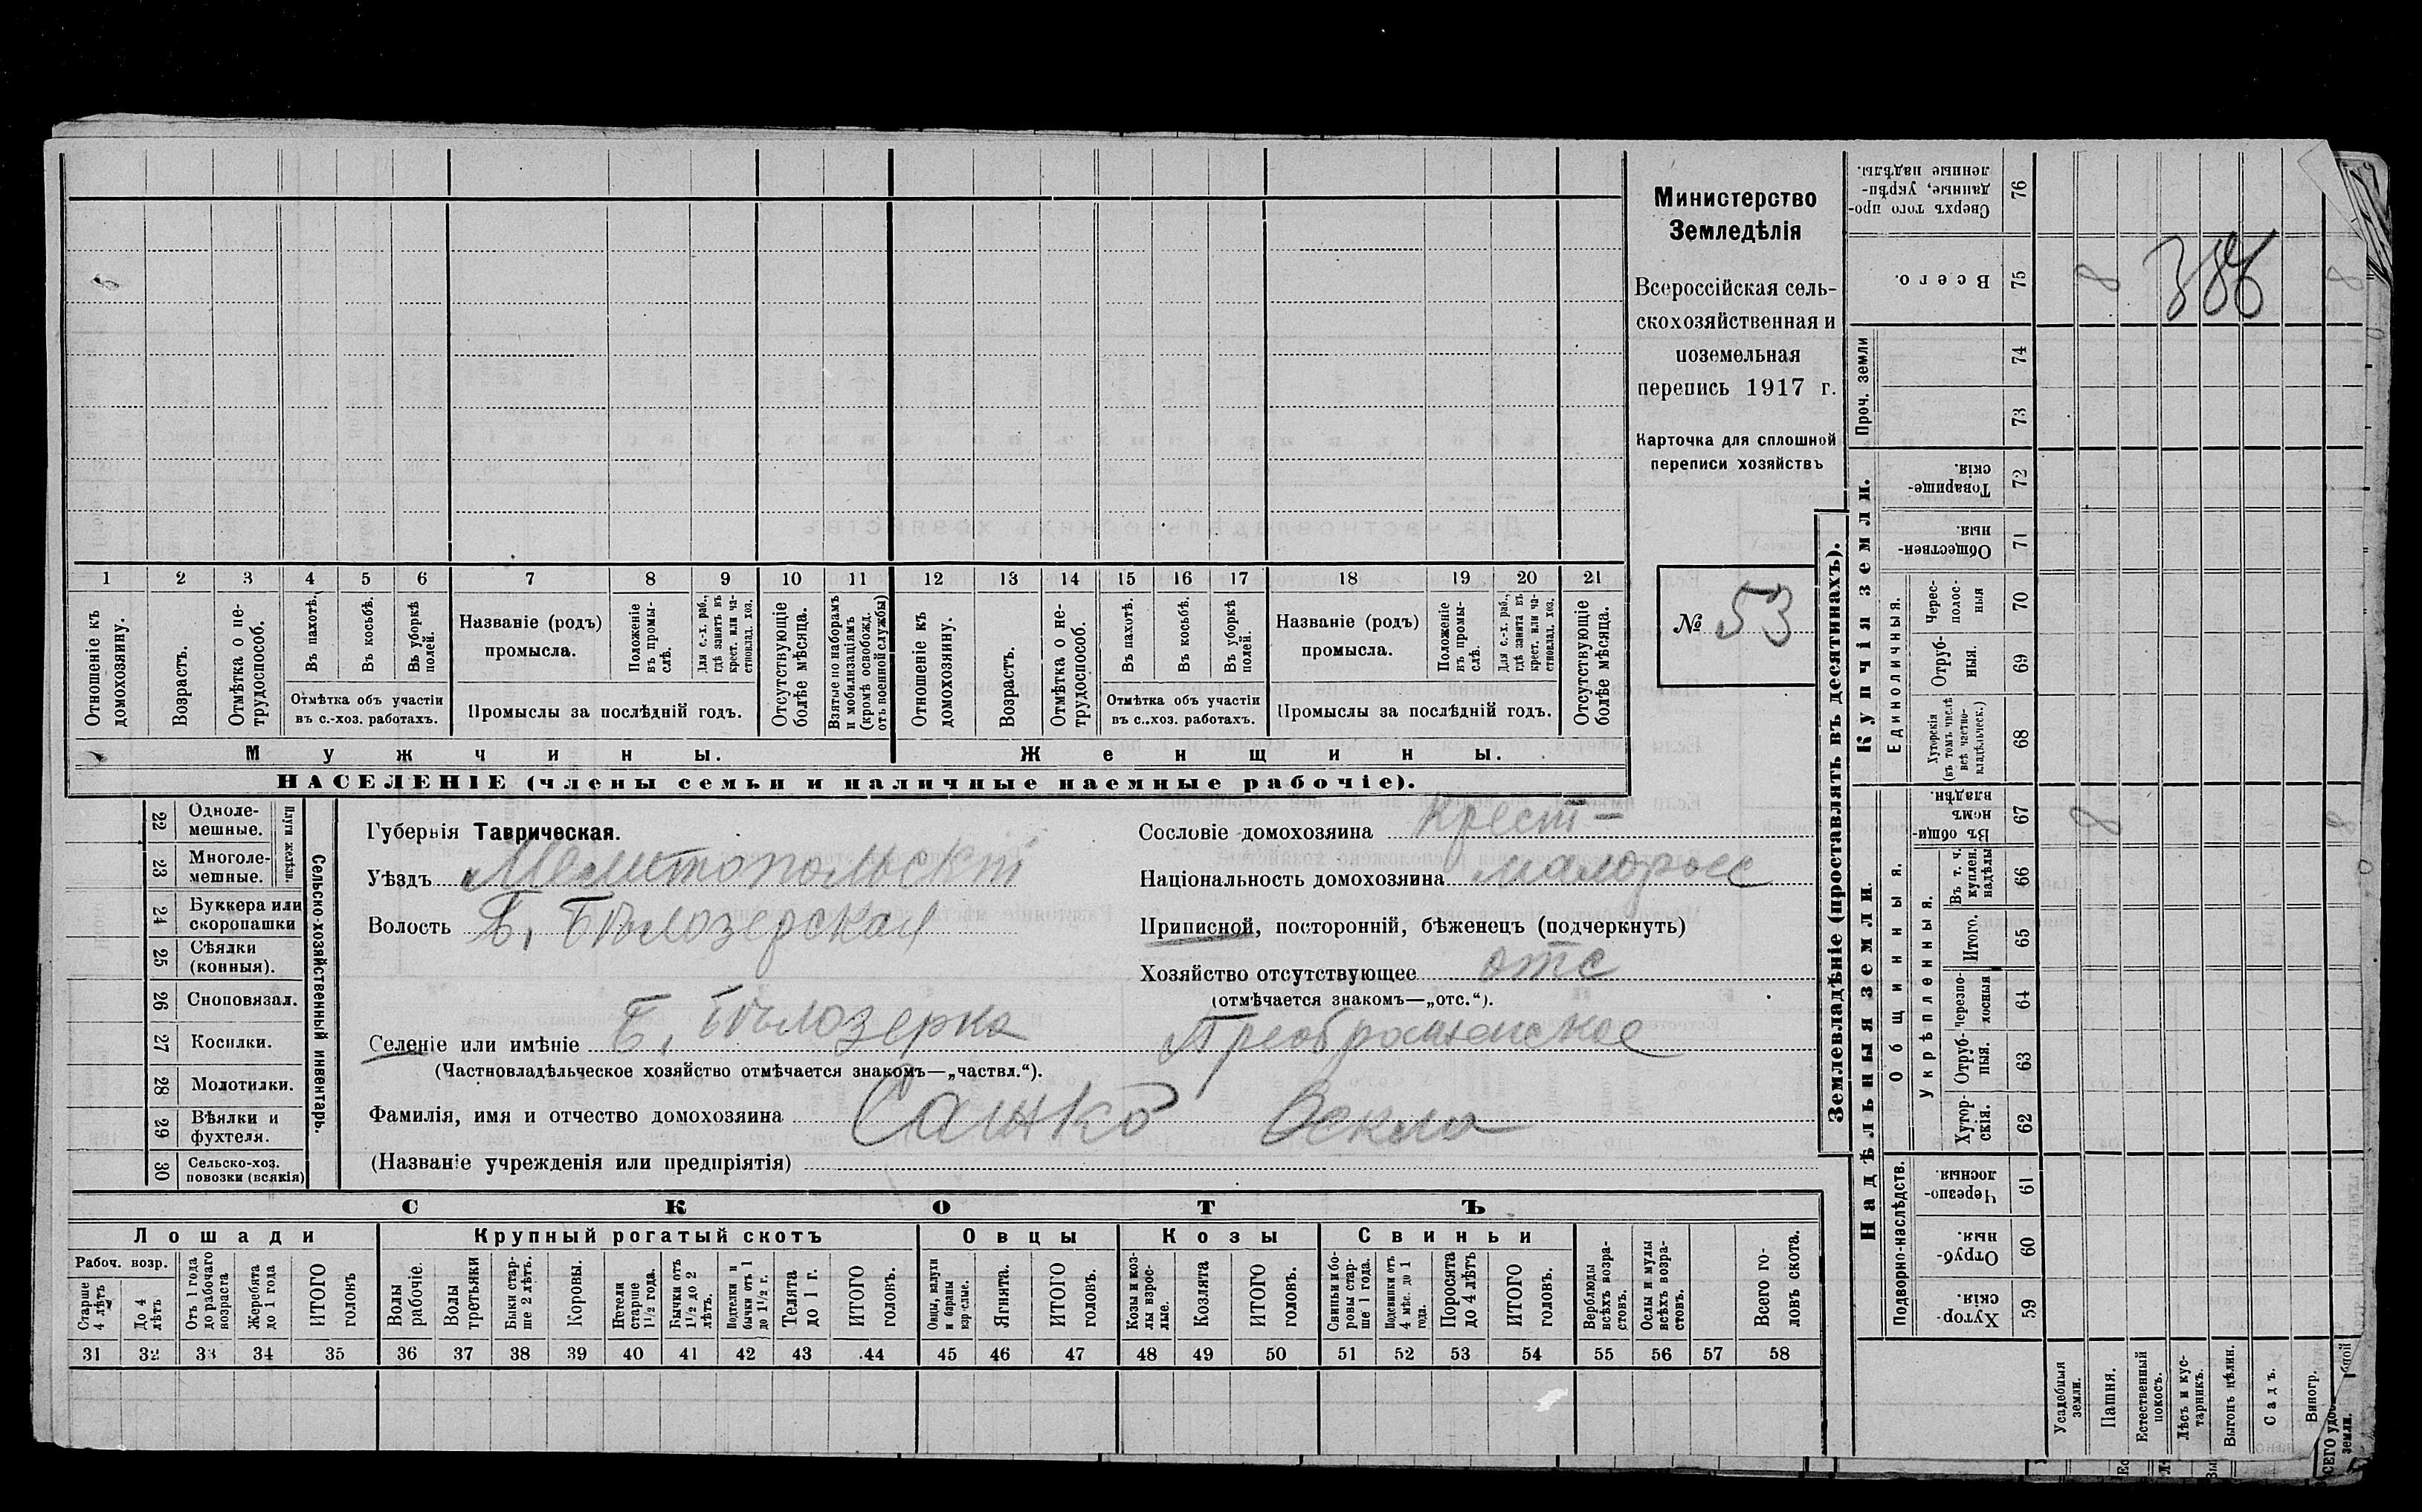 Министерство
Земледѣлія
Всероссійская сель-
скохозяйственная и
поземельная
перепись 1917 г.
Карточка для сплошной
переписи хозяйствъ
№ 53
1 2 3 4 5 6 7 8 9 10 11 12 13 14 15 16 17 18 19 20 21
Отношеніе къ домохозяину.
Возрастъ.
Отмѣтка о не-трудоспособ.
Въ пахотѣ.
Въ косьбѣ.
Въ уборкѣ полей.
Отмѣтка объ участіи
въ с.-хоз. работахъ.
Названіе (родъ)
промысла.
Положеніе въ промы-слѣ.
Для с.-х. раб., гдѣ занятъ въ крест. или ча-стновлад. хоз.
Промыслы за послѣдній годъ.
Отсутствующіе болѣе мѣсяца.
Взятые по наборамъ и мобилизаціямъ (кромѣ освобожд. отъ военной службы)
Отношеніе къ домохозяину.
Возрастъ.
Отмѣтка о не-трудоспособ.
Въ пахотѣ.
Въ косьбѣ.
Въ уборкѣ полей.
Отмѣтка объ участіи
въ с.-хоз. работахъ.
Названіе (родъ)
промысла.
Положеніе въ промы-слѣ.
Для с.-х. раб., гдѣ занята въ крест. или ча-стновлад. хоз.
Промыслы за послѣдній годъ.
Отсутствующіе болѣе мѣсяца.
Мужчины.
Женщины.
НАСЕЛЕНІЕ (члены семьи и наличные наемные рабочіе).
22 Одноле-мешные.
23 Многоле-мешные.
Плуги желѣзн.
24 Буккера или скоропашки
25 Сѣялки (конныя).
26 Сноповязал.
27 Косилки.
28 Молотилки.
29 Вѣялки и фухтеля.
30 Сельско-хоз. повозки (всякія)
Сельско-хозяйственный инвентарь.
Губернія Таврическая.
Уѣздъ Мелитопольскій
Волость Б. Бѣлозерская
Селеніе или имѣніе Б. Бѣлозерка Преображенское
(Частновладѣльческое хозяйство отмѣчается знакомъ—„частвл.“).
Фамилія, имя и отчество домохозяина Сашко Векла
(Названіе учрежденія или предпріятія)
Сословіе домохозяина Крест-
Національность домохозяина малоросс
Приписной, посторонній, бѣженецъ (подчеркнуть)
Хозяйство отсутствующее отс
(отмѣчается знакомъ—„отс.“).
СКОТЪ
Лошади
Крупный рогатый скотъ
Овцы
Козы
Свиньи
Рабоч. возр.
Старше 4 лѣтъ
До 4 лѣтъ
Отъ 1 года до рабочаго возраста
Жеребята до 1 года
ИТОГО головъ
Волы рабочіе.
Волы третьяки
Быки стар-ше 2 лѣтъ.
Коровы.
Нетели старше 1½ года.
Бычки отъ 1½ до 2 лѣтъ.
Подтелки и бычки отъ 1 до 1½ г.
Телята до 1 г.
ИТОГО головъ.
Овцы, валухи и бараны взрослые.
Ягнята.
ИТОГО головъ.
Козы и коз-лы взрос-лые.
Козлята
ИТОГО головъ.
Свиньи и бо-ровы стар-ше 1 года.
Подсвинки отъ 4 мѣс. до 1 года.
Поросята до 4 лѣтъ
ИТОГО головъ.
Верблюды всѣхъ возра-стовъ.
Ослы и мулы всѣхъ возра-стовъ.
Всего го-ловъ скота.
31 32 33 34 35 36 37 38 39 40 41 42 43 44 45 46 47 48 49 50 51 52 53 54 55 56 57 58
Землевладѣніе (проставлять въ десятинахъ).
Сверхъ того про-данные, укрѣп-ленные надѣлы. 76
Всего. 75 8 8
Проч. земли
74
73
Купчія земли.
Товарище-скія. 72
Обществен-ныя. 71
Единоличныя.
Черес-полос-ныя 70
Отруб-ныя. 69
Хуторскія (въ томъ числѣ всѣ частно-владѣльческ.) 68
Надѣльныя земли.
Общинныя.
Въ общи-номъ владѣн. 67 8
Укрѣпленныя.
Въ т. ч. куплен. надѣлы 66
Итого. 65
Черезпо-лосныя 64
Отруб-ныя. 63
Хутор-скія. 62
Подворно-наслѣдств.
Черезпо-лосныя 61
Отруб-ныя. 60
Хутор-скія. 59
Усадебныя земли.
Пашня.
Естественный покосъ.
Лѣсъ и кус-тарникъ.
Выгонъ цѣлин.
Садъ.
Виногр.